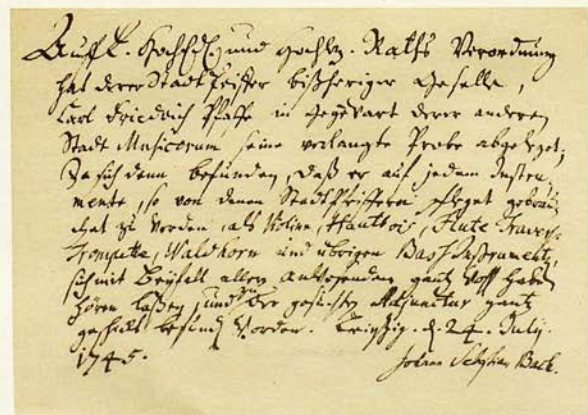 Auff E. HochEdl. und Hochw. Raths Verordnung
hat derer StadtPfeiffer bißheriger Geselle,
Carl Friedrich Pfaffe in gegenwart derer anderen
Stadt Musicorum seine verlangte Probe abgeleget;
Da sich denn befunden, daß er auf jedem Instru
mente, so von denen StadtPfeiffern pfleget gebrau
chet zu werden, als Violine, Hautbois, Flute Travers.
Trompette, Waldhorn und übrigen Bass Instrumenten,
sich mit Beyfall aller Anwesenden gantz wohl habe
hören laßen, und zu der gesuchten Adjunctur gantz
geschickt befunden worden. Leipzig. d. 24. July.
1745.
Johann Sebastian Bach.